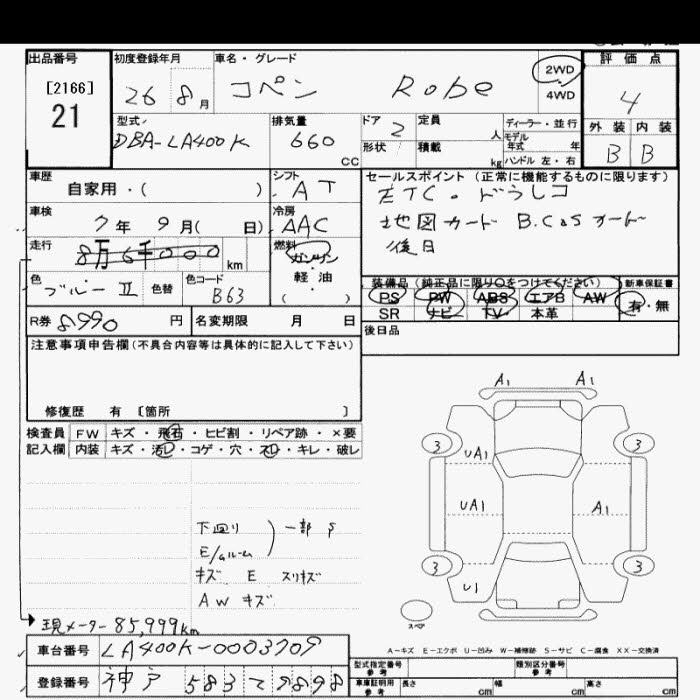 出品番号
[2166]
21
初度登録年月
26 8月
車名・グレード
コペン Robe
2WD
4WD
評価点
4
外装 内装
B B
型式
DBA-LA400K
排気量
660
CC
ドア 2
形状
定員 人
積載 kg
ディーラー・並行
モデル年式 年
ハンドル 左・右
車歴
自家用・( )
シフト
AT
車検
7年 9月( 日)
冷房
AAC
走行
8万6千000 km
燃料
ガソリン
軽・油
( )
色
ブルーⅡ
色替
色コード
B63
セールスポイント (正常に機能するものに限ります)
ETC・ドラレコ
地図カード B.C&S オート
後日
装備品 (純正品に限り○をつけてください)
PS PW ABS エアB AW
SR ナビ TV 本革
新車保証書
有・無
R券 8990 円
名変期限 月 日
後日品
注意事項申告欄(不具合内容等は具体的に記入して下さい)
修復歴 有 [箇所 ]
検査員
記入欄
FW キズ・飛石・ヒビ割・リペア跡・×要
内装 キズ・汚レ・コゲ・穴・スレ・キレ・破レ
A1 A1
3 3
UA1
UA1 A1
3 3
U1
スペア
下回り
E/gルーム
一部 S
キズ E スリキズ
AW キズ
現メーター85,999km
A-キズ E-エクボ U-凹み W-補修跡 S-サビ C-腐食 XX-交換済
車台番号 LA400K-0003709
登録番号 神戸 583 て 9898
型式指定番号
参考
類別区分番号
参考
車庫証明用
参考
長さ cm 幅 cm 高さ cm